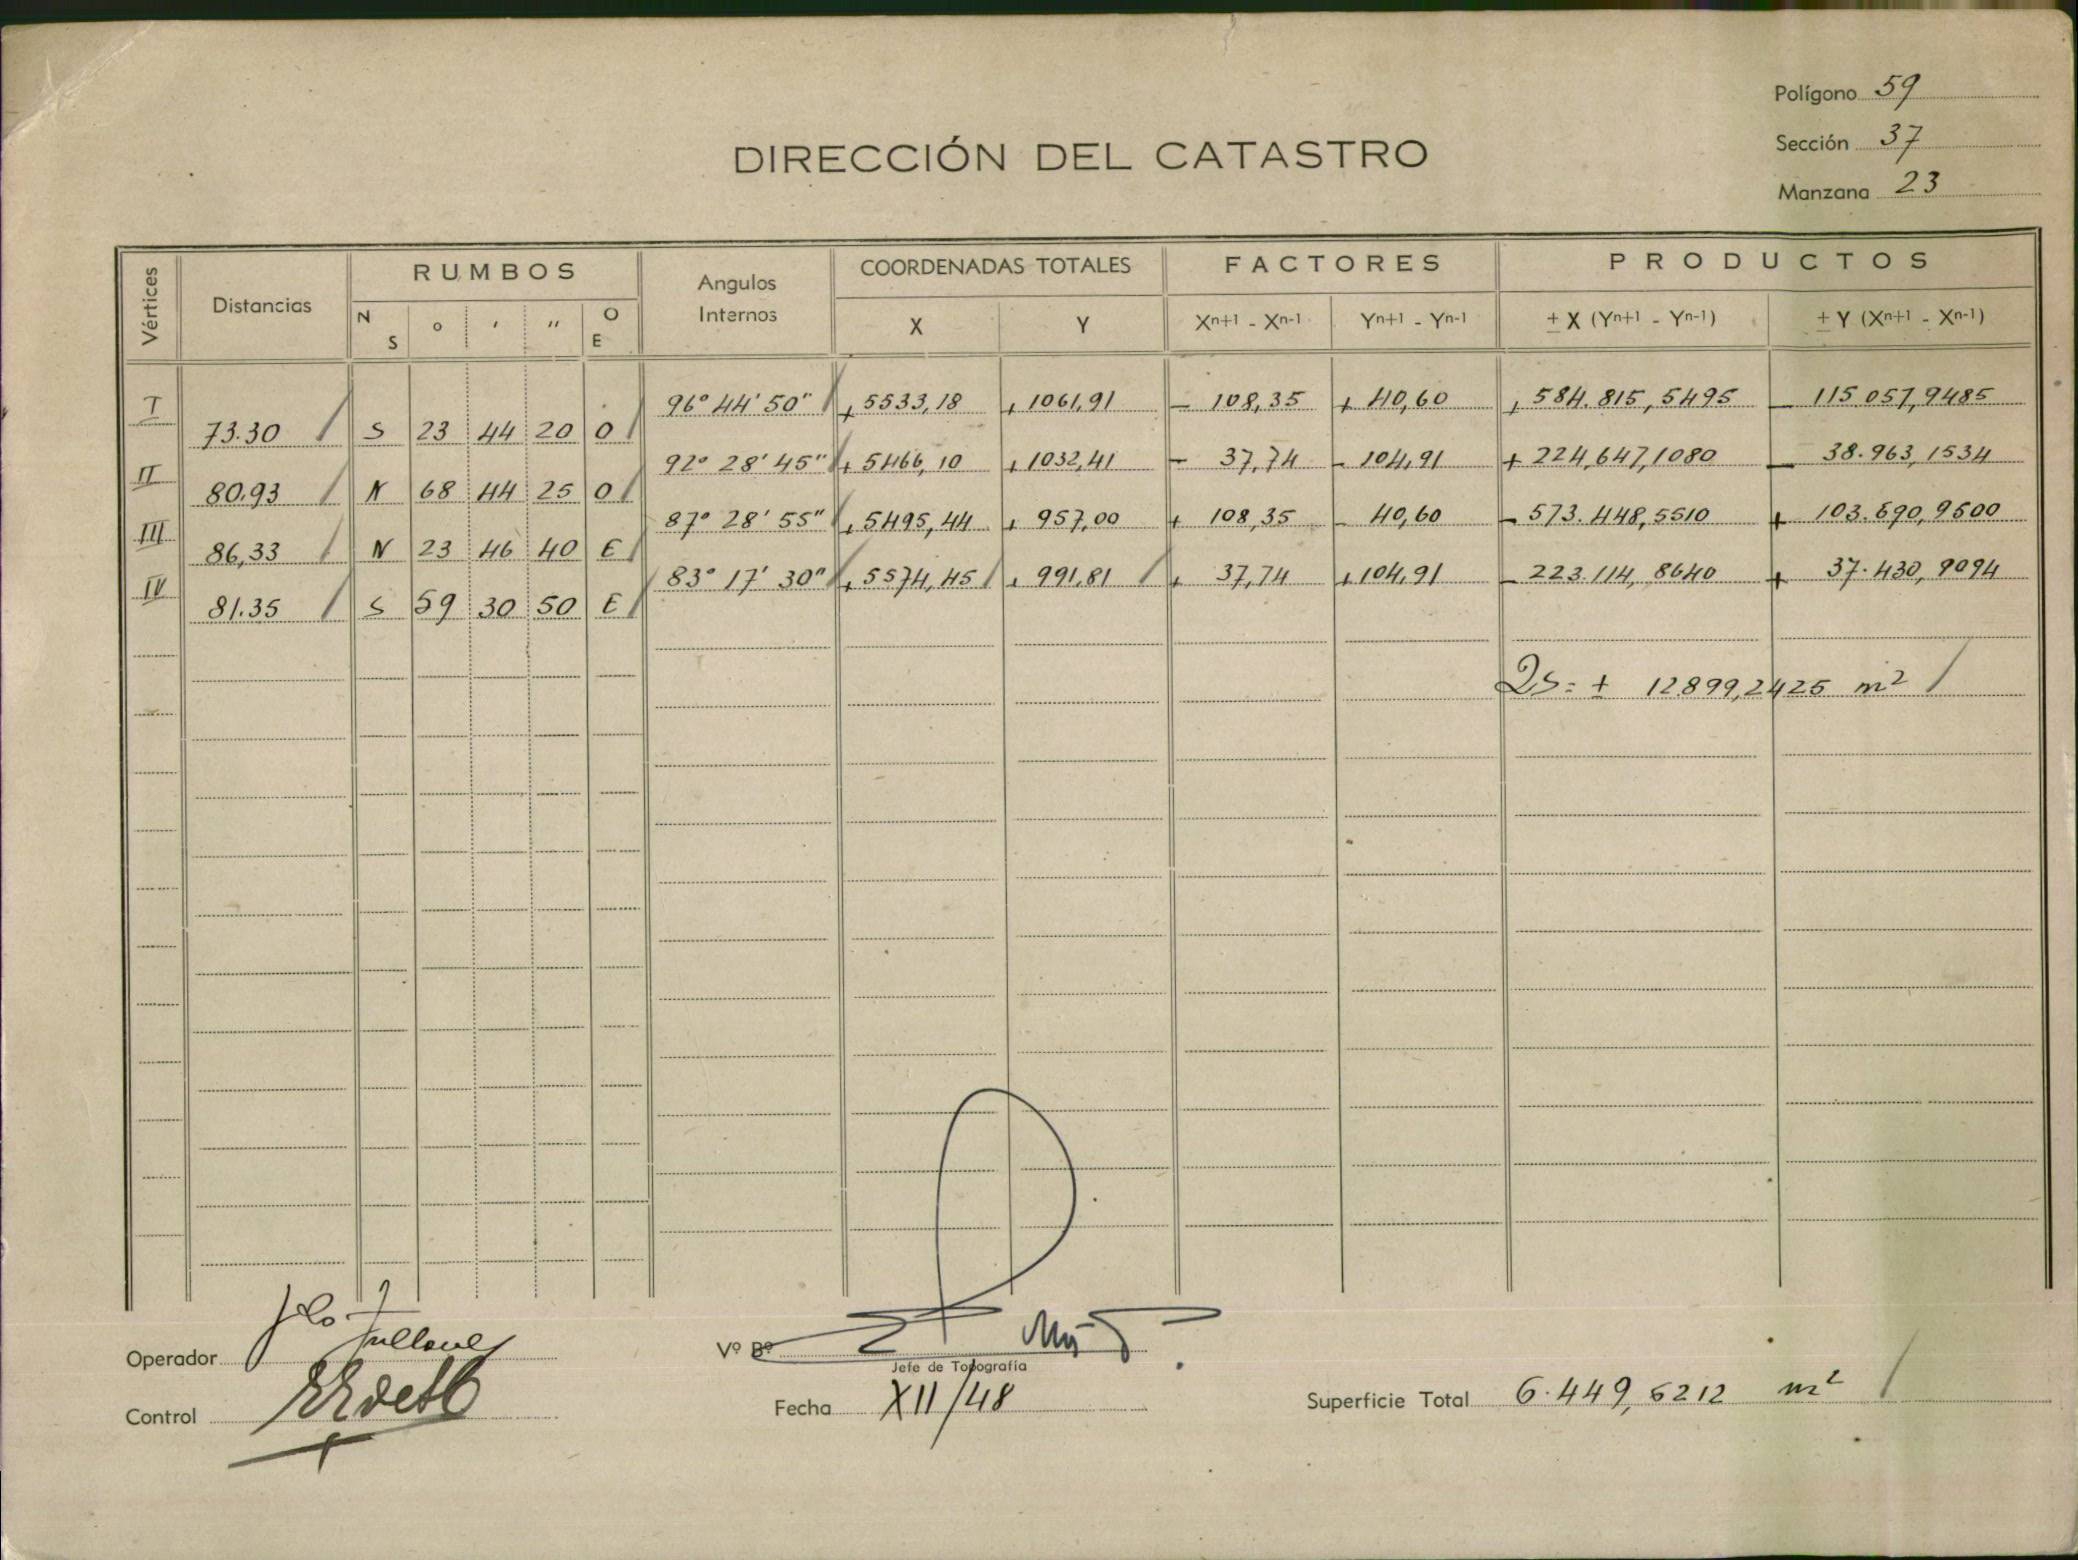 Polígono 59
Sección 37
Manzana 23
DIRECCIÓN DEL CATASTRO
Vértices Distancias RUMBOS Angulos Internos COORDENADAS TOTALES FACTORES PRODUCTOS
N S o ' '' O E X Y Xn+1 - Xn-1 Yn+1 - Yn-1 ± X (Yn+1 - Yn-1) ± Y (Xn+1 - Xn-1)
I 96° 44' 50" / + 5533,18 + 1061,91 - 108,35 + 40,60 + 584.815,5495 - 115.057,9485
73.30 / S 23 44 20 O /
II 92° 28' 45" / + 5466,10 + 1032,41 - 37,74 - 104,91 + 224,647,1080 - 38.963,1534
80.93 / N 68 44 25 O /
III 87° 28' 55" / + 5495,44 + 957,00 + 108,35 - 40,60 - 573.448,5510 + 103.690,9500
86,33 / N 23 46 40 E /
IV 83° 17' 30" / + 5574,45 / + 991,81 / + 37,74 + 104,91 - 223.114,8640 + 37.430,9094
81.35 / S 59 30 50 E /
2S = + 12.899,2425 m² /
Operador
Vº Bº
Jefe de Topografía
Control
Fecha XII/48
Superficie Total 6.449,6212 m² /